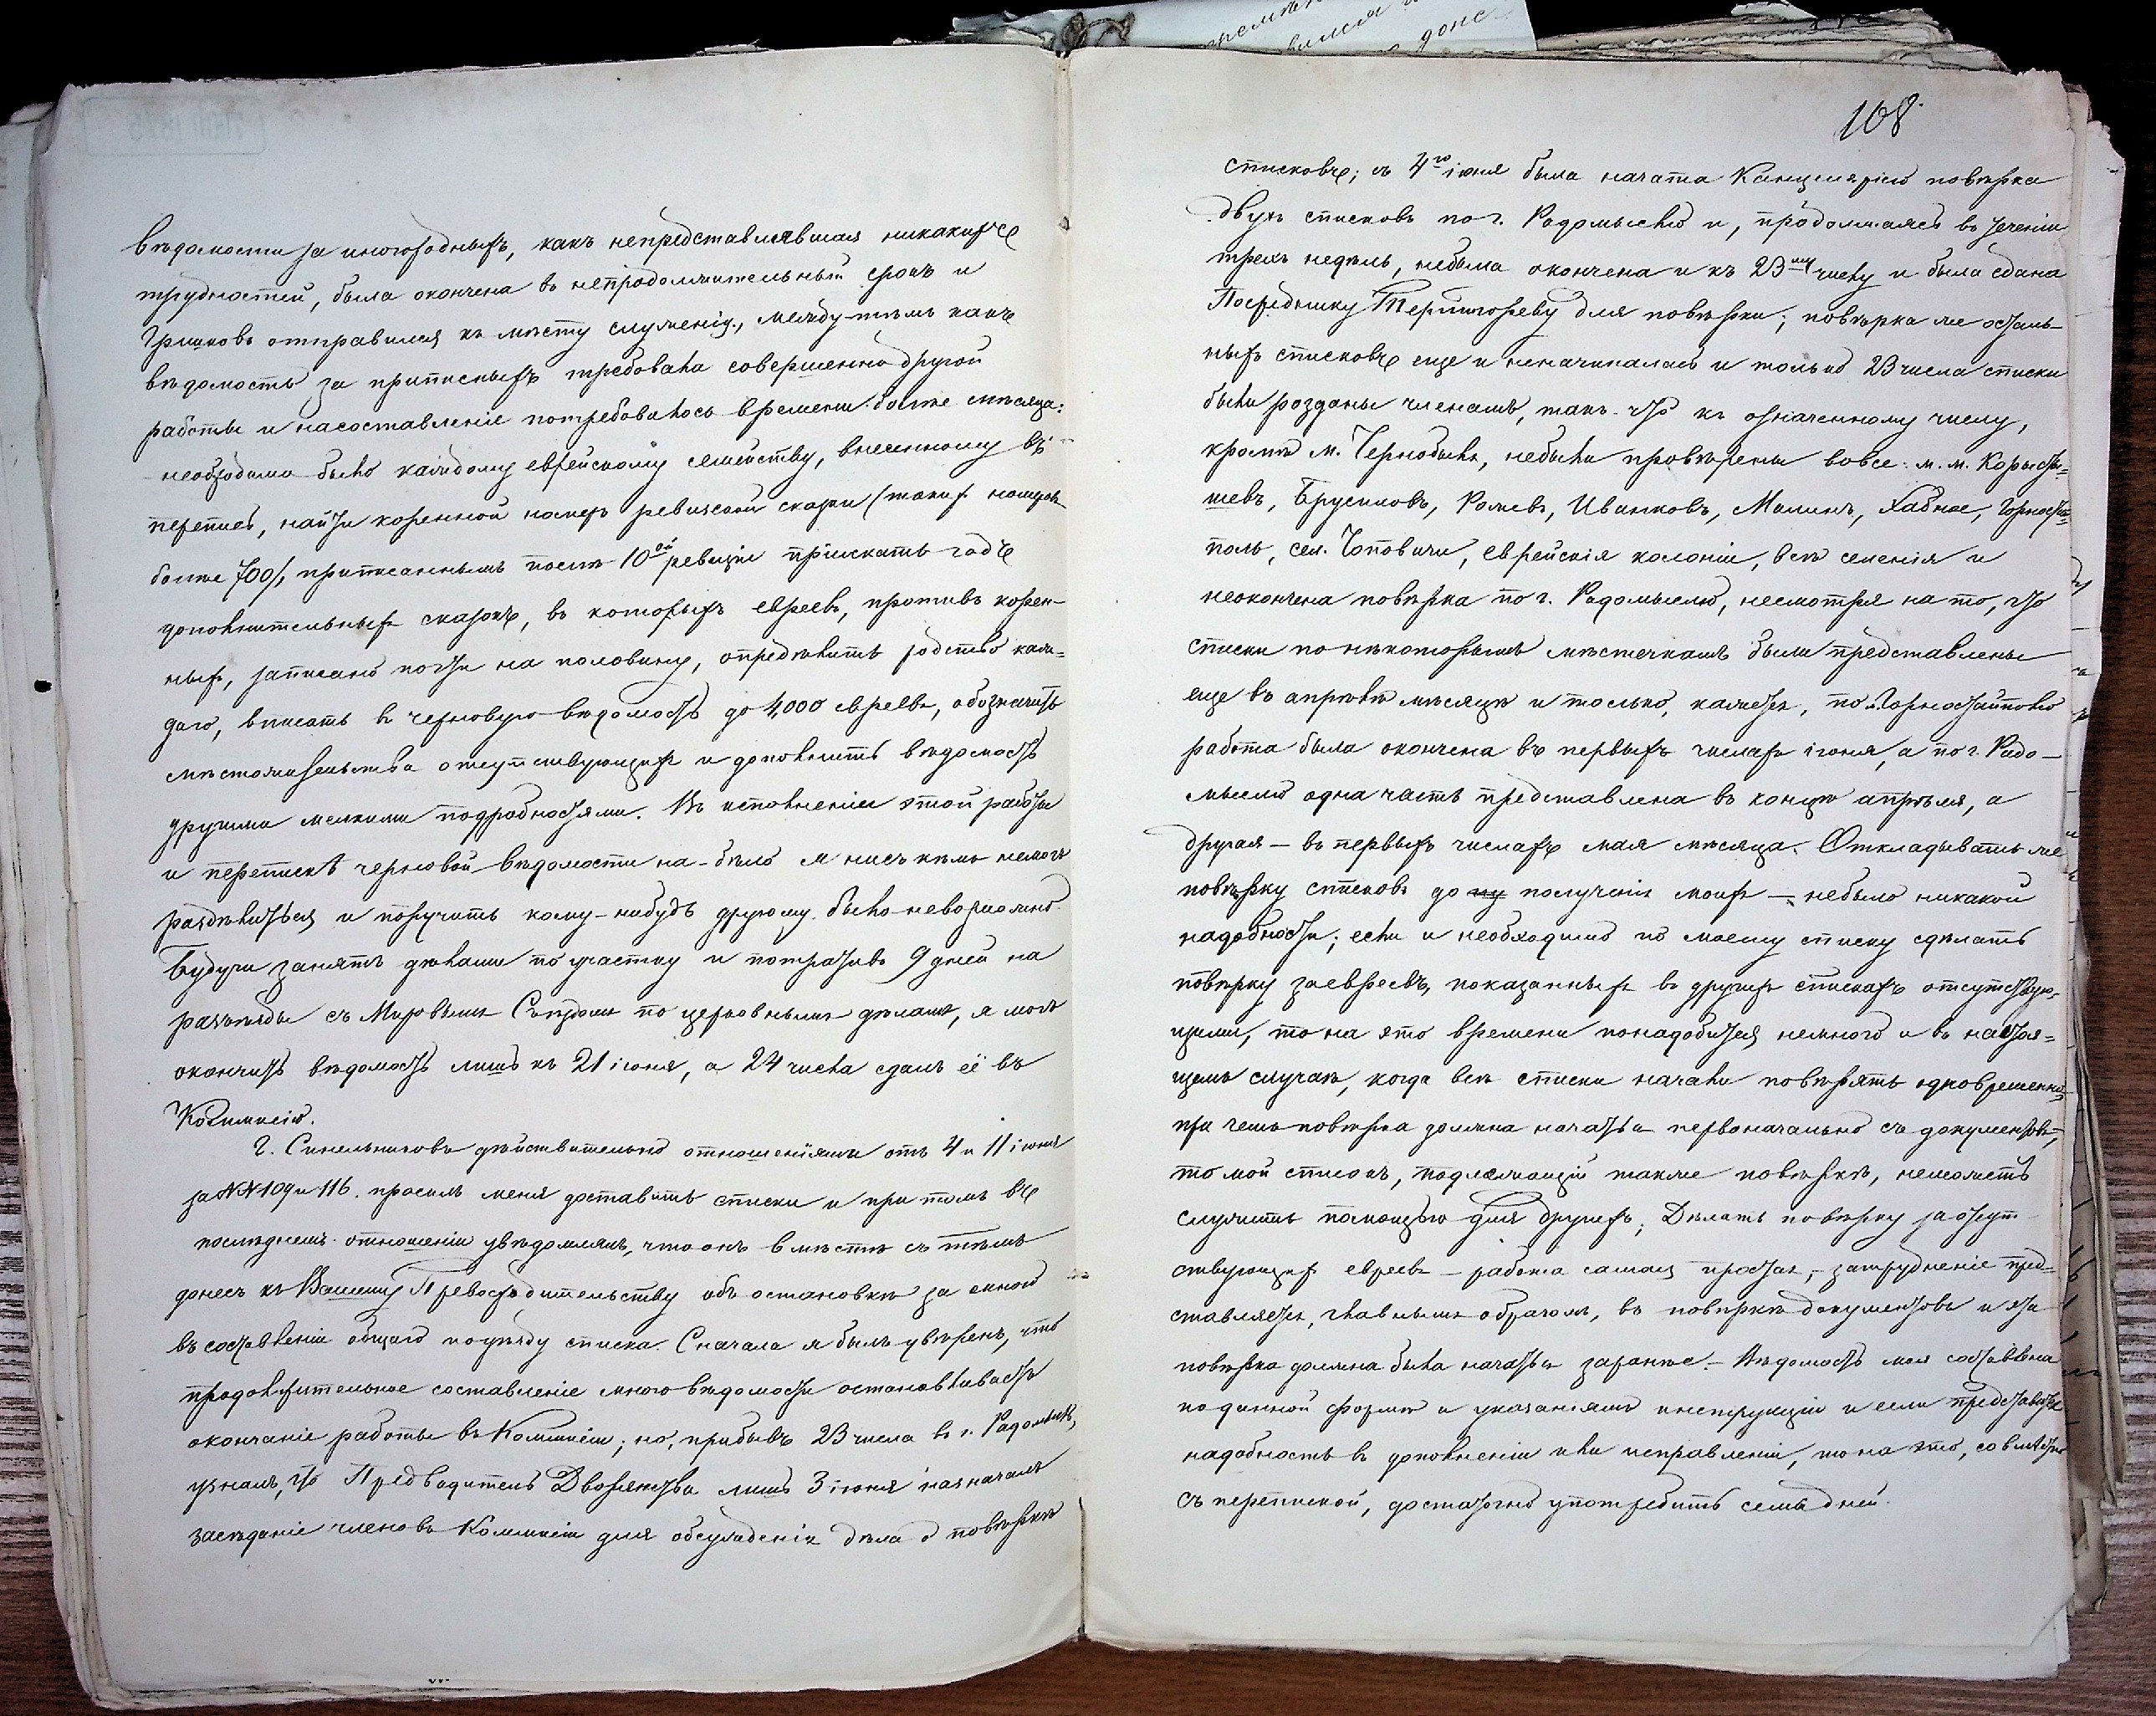 вѣдомости за иногородныхъ, какъ непредставлявшая никакихъ
трудностей, была окончена въ непродолжительный срокъ и
Грицковъ отправился къ мѣсту служенія, между-тѣмъ какъ
вѣдомость за приписныхъ требовала совершенно другой
работы и насоставленіе потребовалось времени болѣе мѣсяца:
необходимо было каждому еврейскому семейству, внесенному въ
перепись, найти коренной номеръ ревизской сказки (такихъ номеровъ
болѣе 700), приписаннымъ послѣ 10ой ревизіи пріискать годъ
дополнительныхъ сказокъ, въ которыхъ евреевъ, противъ корен-
ныхъ, записано почти на половину, опредѣлить родство каж=
даго, вписать въ черновую вѣдомость до 4,000 евреевъ, обозначить
мѣстожительства отсутствующихъ и дополнить вѣдомость
другими мелкими подробностями. Въ исполненіи этой работы
и перепискѣ черновой вѣдомости на-бѣло я нисъ кѣмъ немогъ
раздѣлиться и поручить кому-нибудь другому было невозможно.
Будучи занятъ дѣлами по участку и потративъ 9 дней на
разъѣзды съ Мировымъ Съѣздомъ по церковнымъ дѣламъ, я могъ
окончить вѣдомость лишь къ 21 іюня, а 24 числа сдалъ её въ
Коммисію.
Г. Синельниковъ дѣйствительно отношеніями отъ 4 и 11 іюня
за №№ 109 и 116. просилъ меня доставить списки и при томъ въ
послѣднемъ отношеніи увѣдомлялъ, что онъ вмѣстѣ съ тѣмъ
донесъ къ Вашему Превосходительству объ остановкѣ за мной
въ составленіи общаго поуѣзду списка. Сначала я былъ увѣренъ, что
продолжительное составленіе мною вѣдомости остановливаетъ
окончаніе работы въ Коммисіи; но, прибывъ 23 числа въ г. Радомысль,
узналъ, что Предводитель Дворянства лишь 3 іюня назначалъ
засѣданіе членовъ Коммисіи для обсужденія дѣла о повѣркѣ
108
списковъ; съ 4го іюня была начата Канцеляріею повѣрка
двухъ списковъ по г. Радомыслю и, продолжаясь въ теченіи
трехъ недѣль, небыла окончена и къ 23му числу и была сдана
Посреднику для повѣрки; повѣрка же осталь-
ныхъ списковъ еще и неначиналась и только 23 числа списки
были розданы членамъ, такъ-что къ означенному числу,
кромѣ м. Чернобыля, небыли провѣрены вовсе: м. м. Корысты=
шевъ, Брусиловъ, Рожевъ, Иванковъ, Малинъ, Хабное, Горноста=
поль, сел. Чоповичи, еврейскія колоніи, всѣ селенія и
неокончена повѣрка по г. Радомыслю, несмотря на то, что
списки по нѣкоторымъ мѣстечкамъ были представлены
еще въ апрѣлѣ мѣсяцѣ и только, кажется, по м. Горностайполю
работа была окончена въ первыхъ числахъ іюня, а по г. Радо-
мыслю одна часть представлена въ концѣ апрѣля, а
другая — въ первыхъ числахъ мая мѣсяца. Откладывать же
повѣрку списковъ до полученія моихъ — небыло никакой
надобности; если и необходимо по моему списку сдѣлать
повѣрку заевреевъ, показанныхъ въ другихъ спискахъ отсутствую-
щими, то на это времени понадобится немного и въ настоя=
щемъ случаѣ, когда всѣ списки начали повѣрять одновременно,
при чемъ повѣрка должна начаться первоначально съ документовъ,
то мой списокъ, подлежащій также повѣркѣ, неможетъ
служить помощью для другихъ; Дѣлать повѣрку за отсут
ствующихъ евреевъ — работа самая простая, — затрудненіе пред=
ставляется, главнымъ образомъ, въ повѣркѣ документовъ и эта
повѣрка должна была начаться заранѣе. — Вѣдомость моя составлена
поданной формѣ и указаніямъ инструкціи и если представится
надобность въ дополненіи или исправленіи, то на это, совмѣстно
съ перепиской, достаточно употребить семь дней.